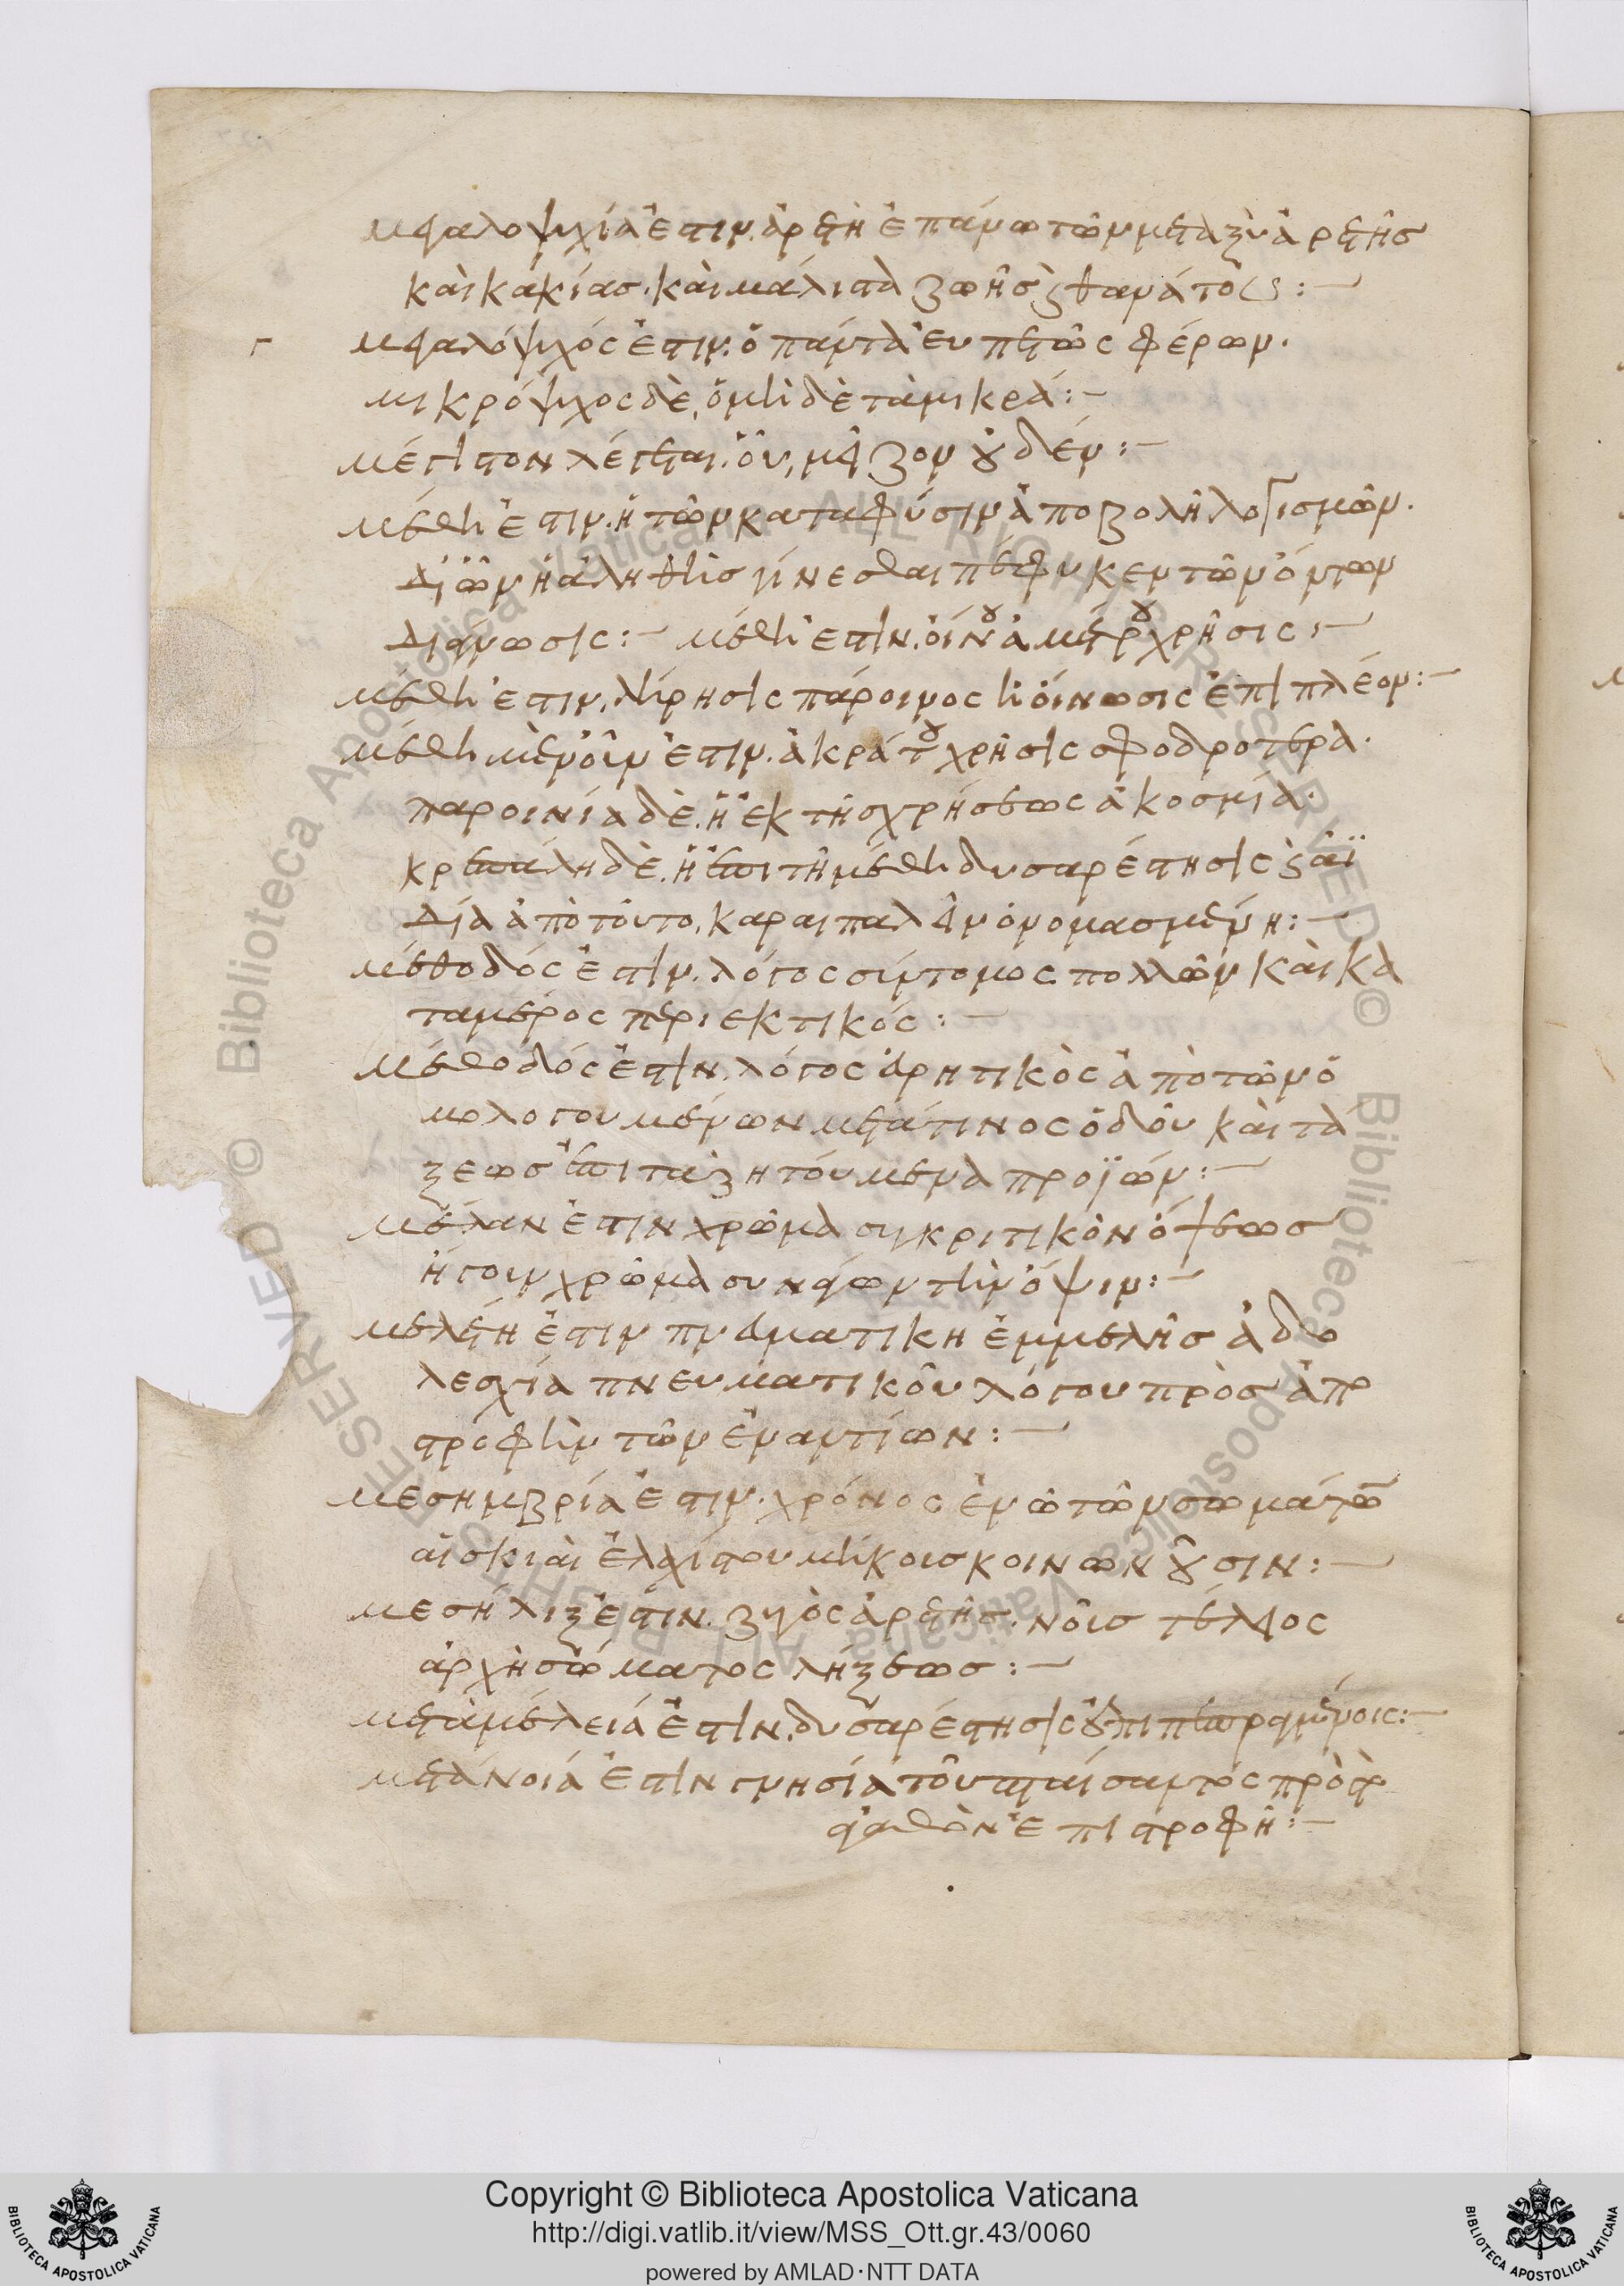 μεγαλοψυχία ἐστιν. ἀρετὴ ἐπάνω τῶν μεταξὺ ἀρετῆσ
καὶ κακίασ. καὶ μάλιστα ζωῆσ ϗ θανάτου :—
μεγαλόψυχός ἐστιν. ὁ πάντα εὐπετῶς φέρων.
μικρόψυχος δὲ, ὁ μηδὲ τὰ μικρά :—
μέγιστον λέγεται. οὗ, μεῖζον οὐδέν :—
μέθη ἐστιν. ἡ τῶν κατα φύσιν ἀποβολὴ λογισμῶν.
δι ὧν ἡ ἀληθὴσ γίνεσθαι πέφυκεν τῶν ὄντων
διάγνωσις :— μέθη ἐστιν. οἴνου ἀμέτρου χρῆσις :—
μέθη ἐστιν. λήρησις πάροινος ἢ οἴνωσις ἐπι πλέον :—
μέθη μὲν οὖν ἐστιν. ἀκράτου χρῆσις σφοδροτέρα.
παροινία δὲ. ἡ ἐκ τῆσ χρήσεως ἀκοσμία.
κρεπάλη δὲ. ἡ ἐπι τῆ μέθη δυσαρέστησις ϗ ἀϊ
δία ἀπὸ τούτο, καραιπαλ εἶν ὀνομασμένη :—
μέθοδός ἐστιν. λόγος σύντομος πολλῶν καὶ κα
ταμέρος περιεκτικός :—
μέθοδός ἐστιν. λόγος εὑρητικὸς ἀπὸ τῶν ὁ
μολογουμένων μετά τινος ὁδοῦ καὶ τά
ξεωσ ἐπι τα ζητούμενα προϊών :—
μέλαν ἐστιν χρῶμα συγκριτικὸν ὄψεωσ
ἤγουν χρῶμα συνάγων τὴν ὄψιν :—
μελέτη ἐστιν πνευματικη ἐμμελὴσ ἀδο
λεσχία πνευματικοῦ λόγου πρὸσ ἀπο
στροφὴν τῶν ἐναντίων :—
μεσημβρία ἐστιν. χρόνος ἐν ὧ τῶν σωμάτων
αἱ σκιαὶ ἐλαχίστου μήκουσ κοινωνοῦσιν :—
μεσήλιξ ἐστιν. ζυγὸς ἀρετῆσ. νοῦσ τέλειος
ἀρχὴ σώματος λήξεωσ :—
μεταμέλειά ἐστιν. δυσαρέστησις ἐπι πεπραγμένοις :—
μετάνοιά ἐστιν γνησία τοῦ πταίσαντος πρὸς τὸ
ἀγαθὸν ἐπιστροφή :—
Copyright © Biblioteca Apostolica Vaticana
http://digi.vatlib.it/view/MSS_Ott.gr.43/0060
powered by AMLAD·NTT DATA